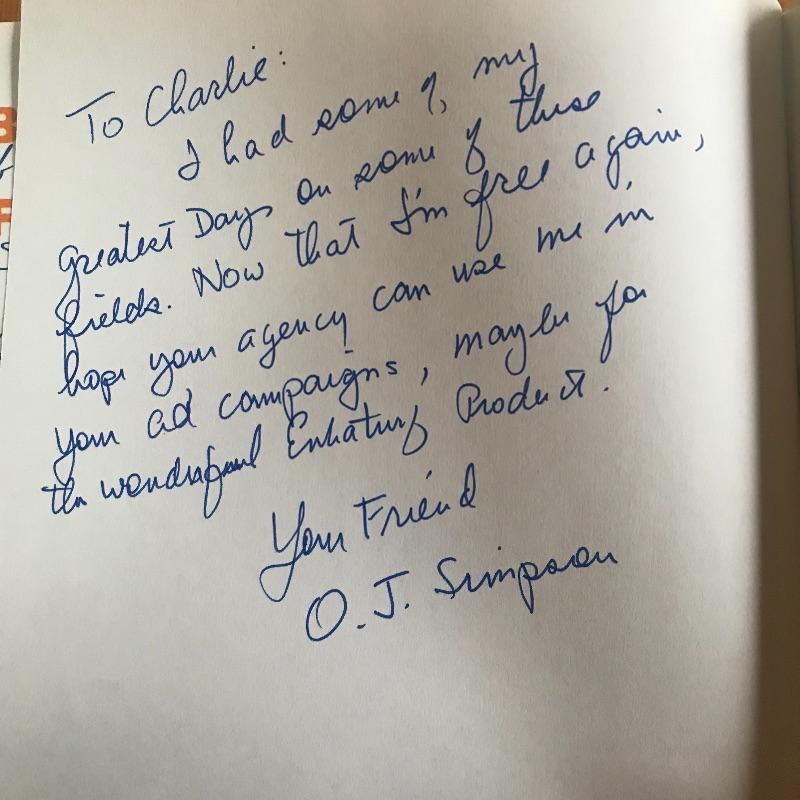 To Charlie:
I had some of, my
greatest Days on some of these
fields. Now that I'm free again,
hope your agency can use me in
your ad campaigns, maybe for
the wonderful Product.
Your Friend
O. J. Simpson